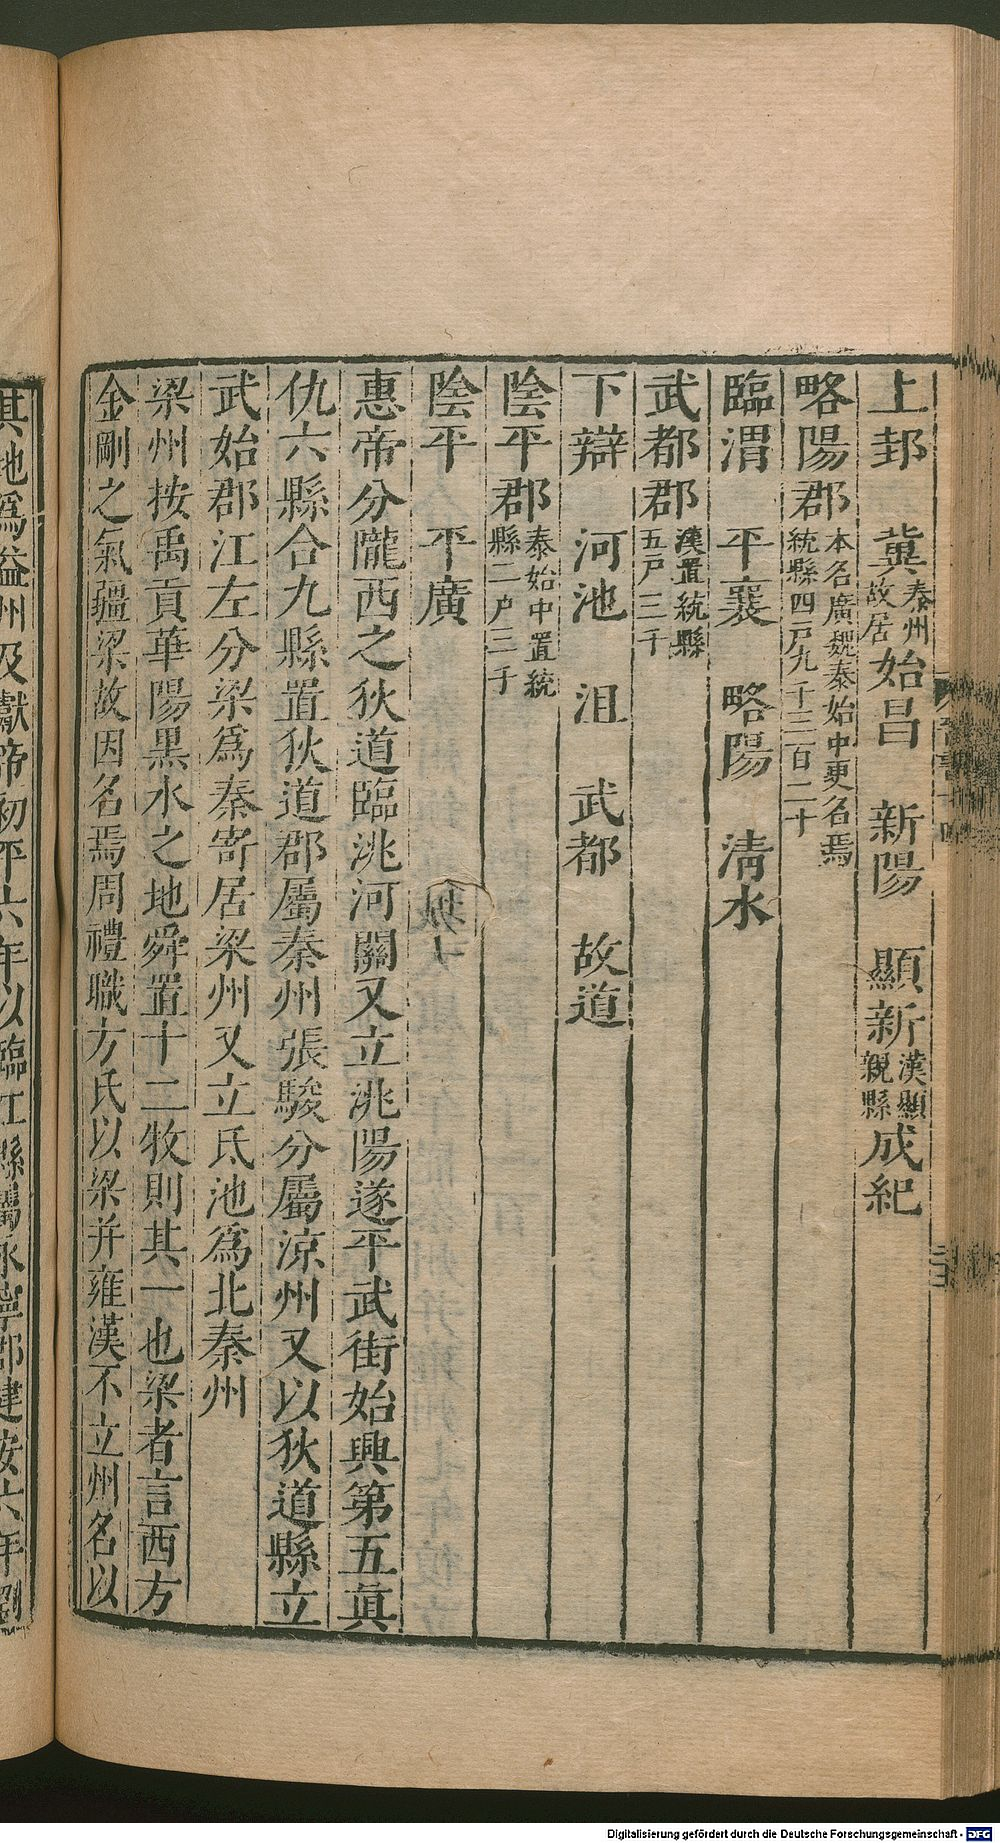 上邽　冀秦州故居始昌　新陽　顯新漢顯親縣成紀
略陽郡本名廣魏泰始中更名焉統縣四戸九千三百二十
臨渭　平襄　略陽　清水
武都郡漢置統縣五戸三千
下辯　河池　沮　武都　故道
陰平郡泰始中置統縣二戸三千
陰平　平廣
惠帝分隴西之狄道臨洮河關又立洮陽遂平武街始興第五眞
仇六縣合九縣置狄道郡屬秦州張駿分屬涼州又以狄道縣立
武始郡江左分梁爲秦寄居梁州又立氐池爲北秦州
梁州按禹貢華陽黑水之地舜置十二牧則其一也梁者言西方
金剛之氣疆梁故因名焉周禮職方氏以梁并雍漢不立州名以
其地爲益州及獻帝初平六年以臨江縣屬永寧郡建安六年劉
Digitalisierung gefördert durch die Deutsche Forschungsgemeinschaft - DFG